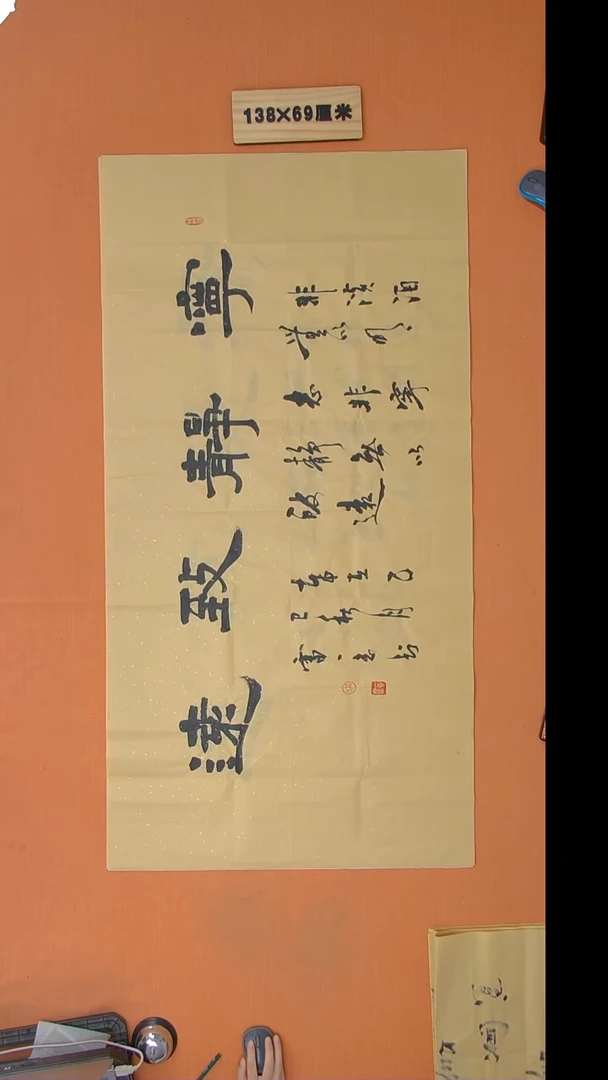 138×69厘米
寧靜致遠
非澹泊
無以明
志非寧
靜無以
致遠
歲在乙
巳秋月